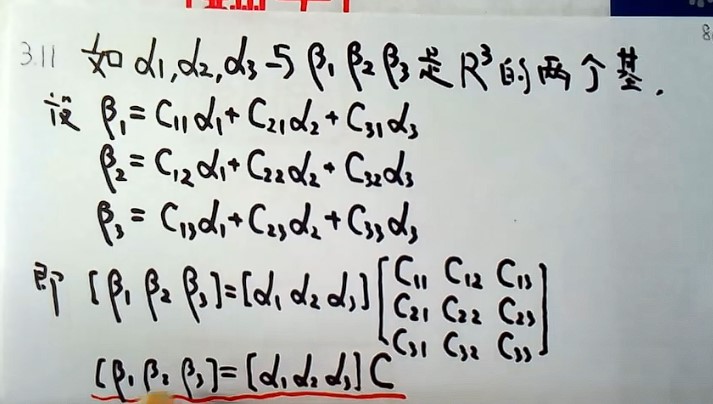 3.11 如 α₁,α₂,α₃与 β₁ β₂ β₃是 R³的两个基.
设 β₁= C₁₁α₁+ C₂₁α₂+ C₃₁α₃
β₂= C₁₂α₁+ C₂₂α₂+ C₃₂α₃
β₃= C₁₃α₁+ C₂₃α₂+ C₃₃α₃
即 [β₁ β₂ β₃]=[α₁ α₂ α₃] [C₁₁ C₁₂ C₁₃
C₂₁ C₂₂ C₂₃
C₃₁ C₃₂ C₃₃]
[β₁ β₂ β₃]=[α₁ α₂ α₃] C